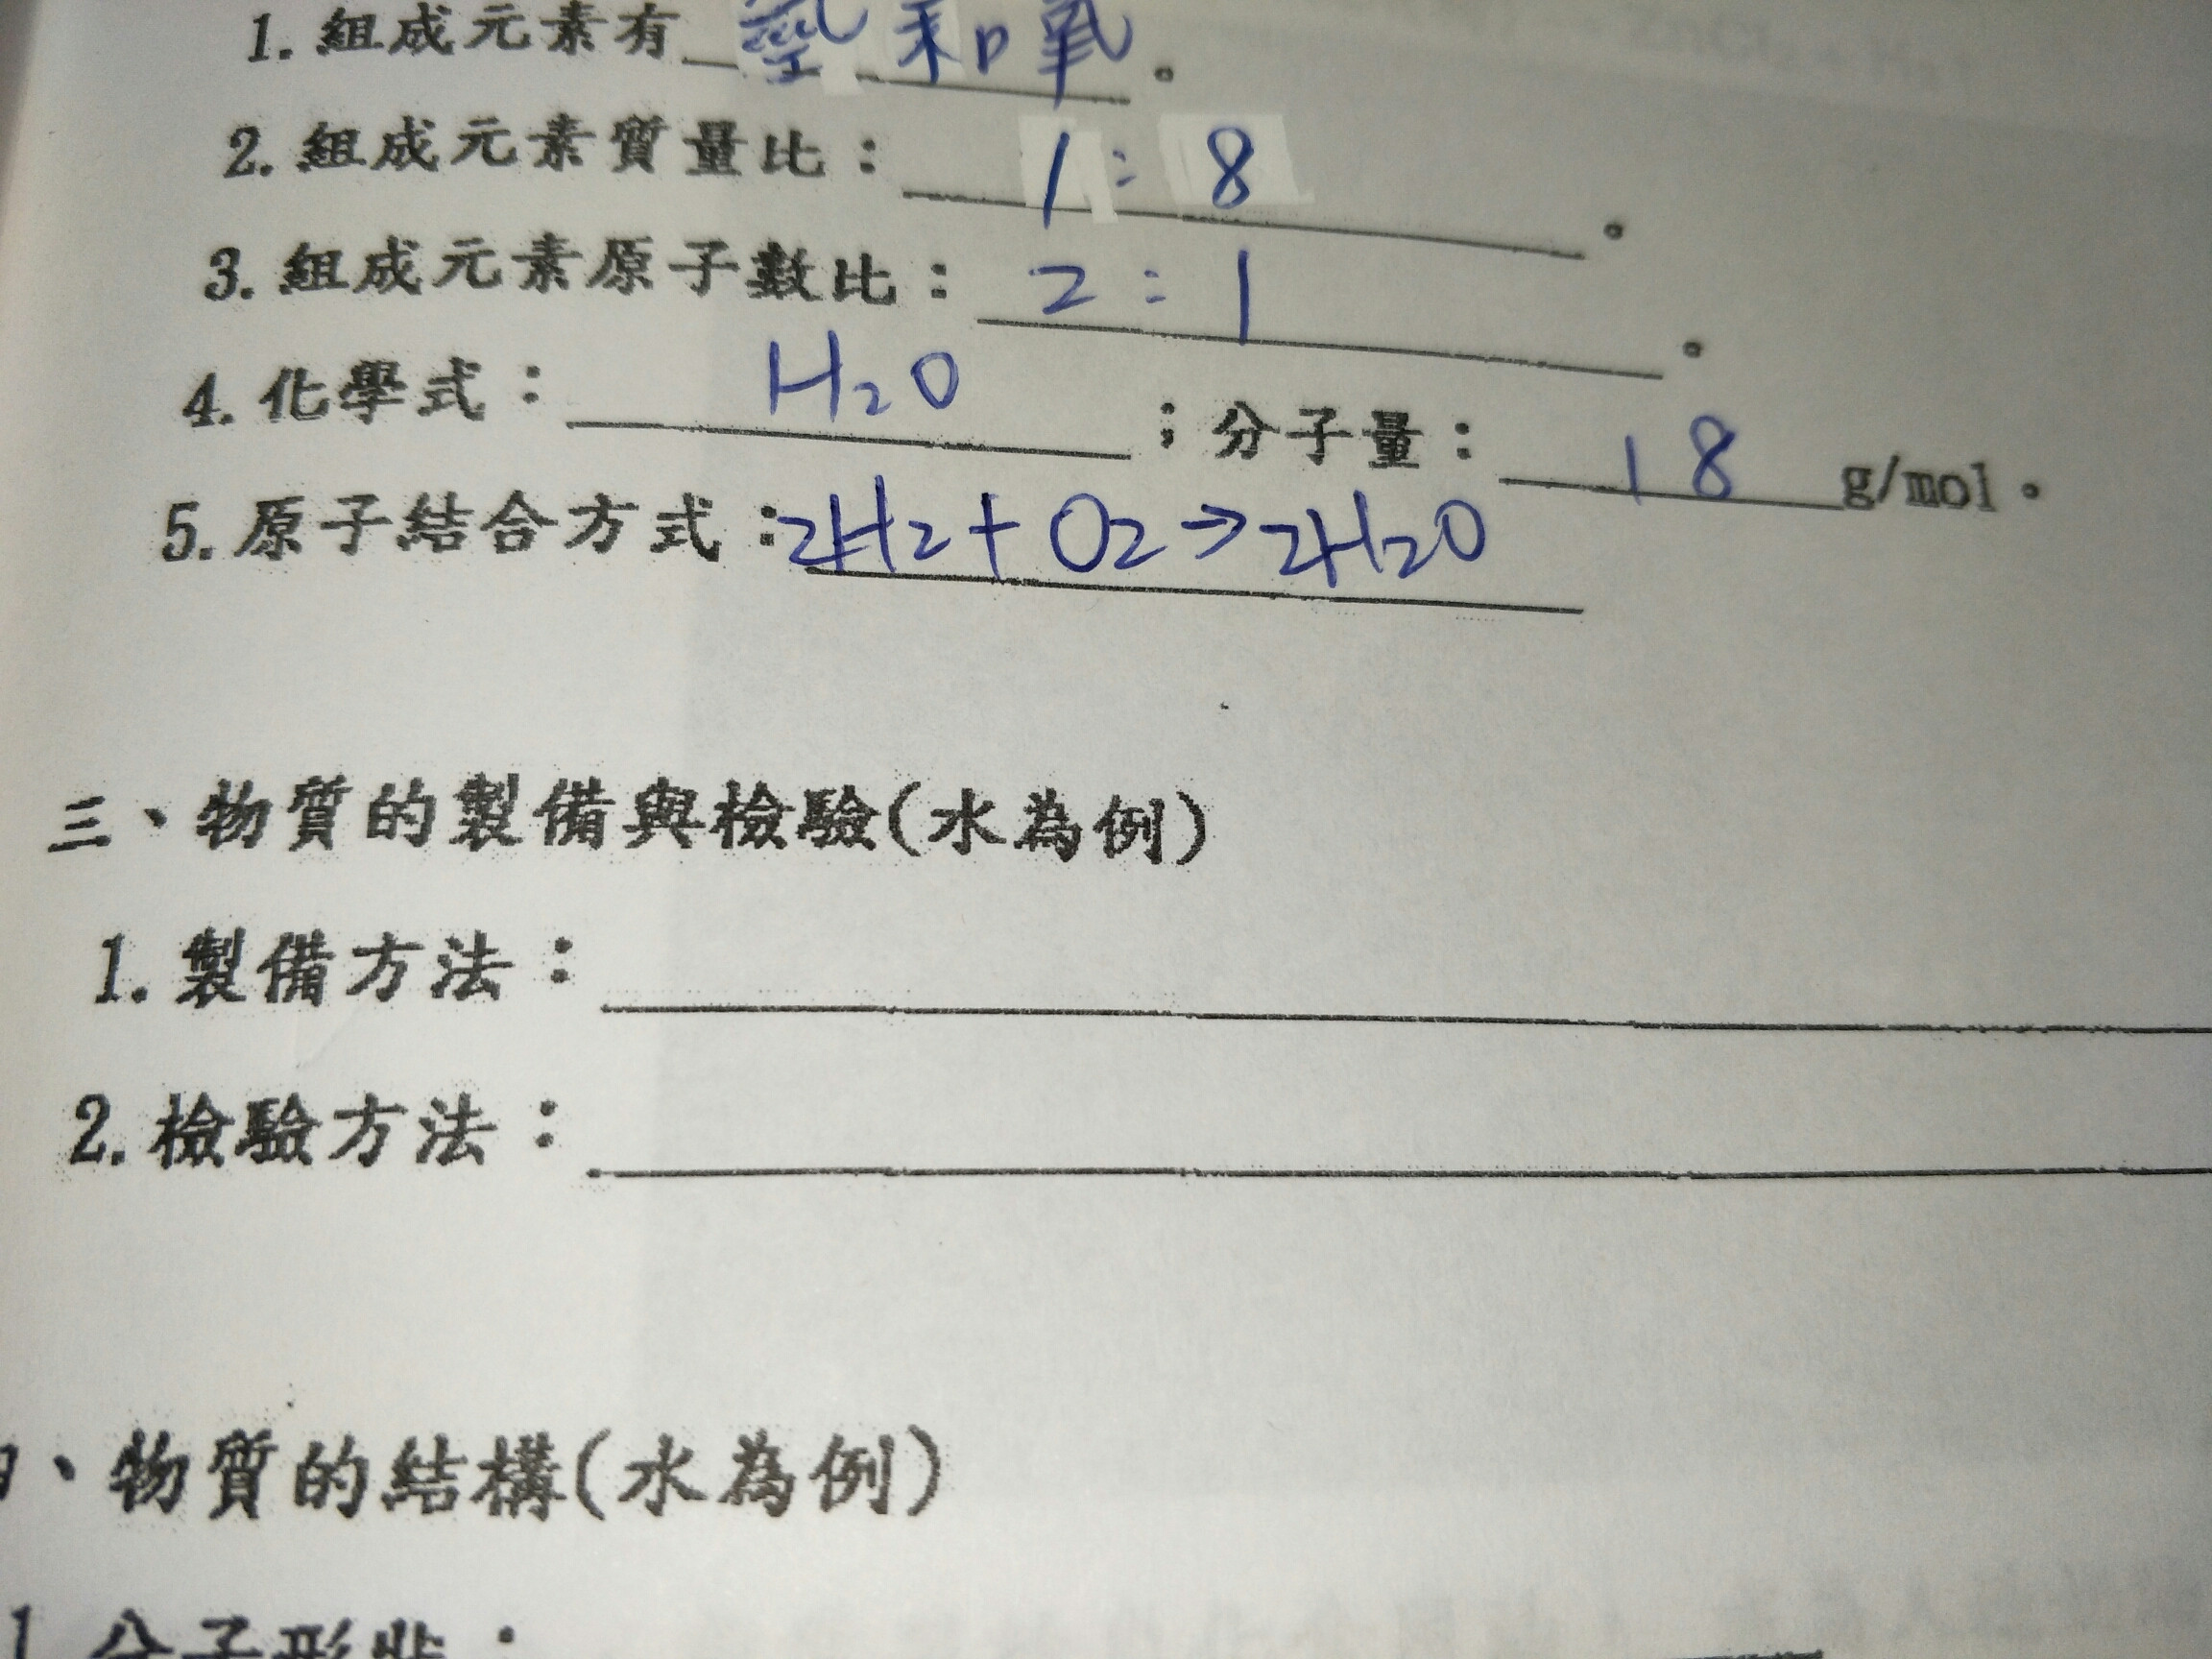 1. 組成元素有 氫和氧。
2. 組成元素質量比： 1：8 。
3. 組成元素原子數比： 2：1 。
4. 化學式： H₂O ；分子量： 18 g/mol。
5. 原子結合方式：2H₂+O₂→2H₂O
三、物質的製備與檢驗(水為例)
1. 製備方法：
2. 檢驗方法：
、物質的結構(水為例)
1 分子形狀：